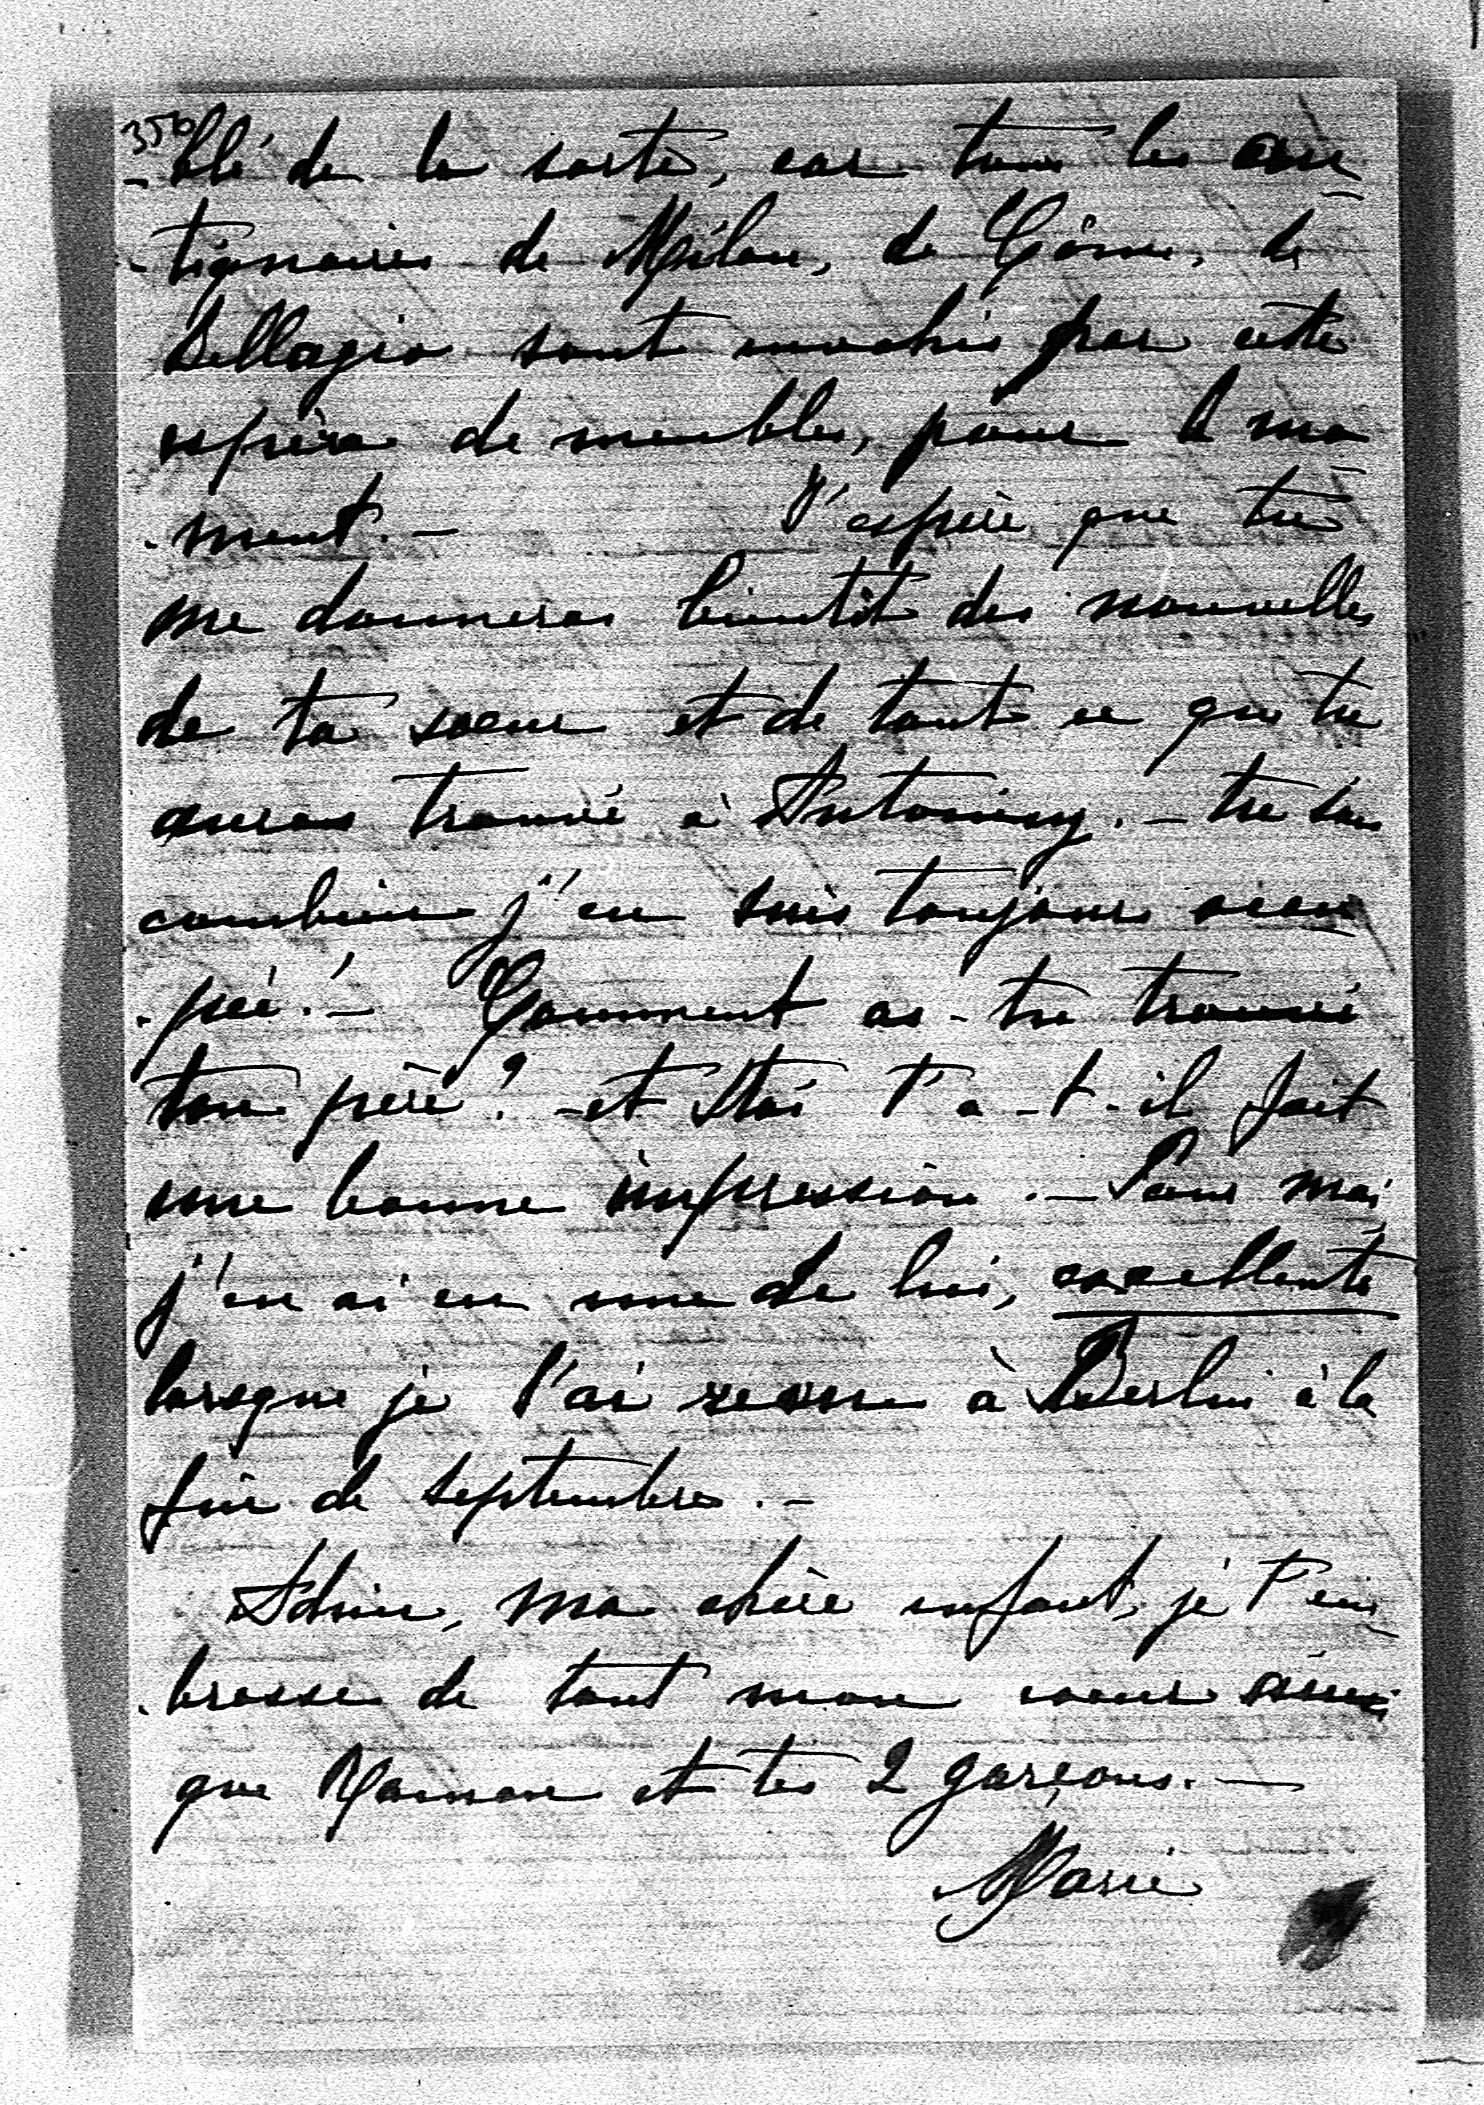 356
-blé de la sorte, car tous les an
-tiquaires de Milan, de Côme, de
Bellagio sont envahis par cette
espèce de meubles, pour le mo
-ment. — J'espère que tu
me donneras bientôt des nouvelles
de ta soeur et de tout ce que tu
auras trouvé à Antoniny. — tu sais
combien j'en suis toujours occu
-pée! — Comment as-tu trouvé
ton père? — et Stas t'a-t-il fait
une bonne impression. — Pour moi
j'en ai eu une de lui, excellente
lorsque je l'ai revu à Berlin à la
fin de septembre. —
Adieu, ma chère enfant, je t'em
-brasse de tout mon coeur ainsi
que Maman et tes 2 garçons. —
Marie